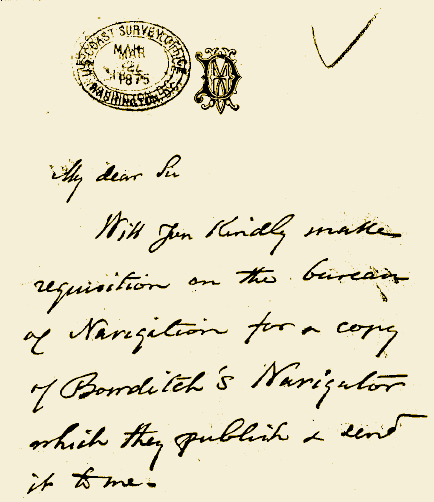 U.S. COAST SURVEY OFFICE
MAR
1875
WASHINGTON, D.C.
My dear Sir
Will you Kindly make
requisition on the bureau
of Navigation for a copy
of Bowditch's Navigator
which they publish & send
it to me.